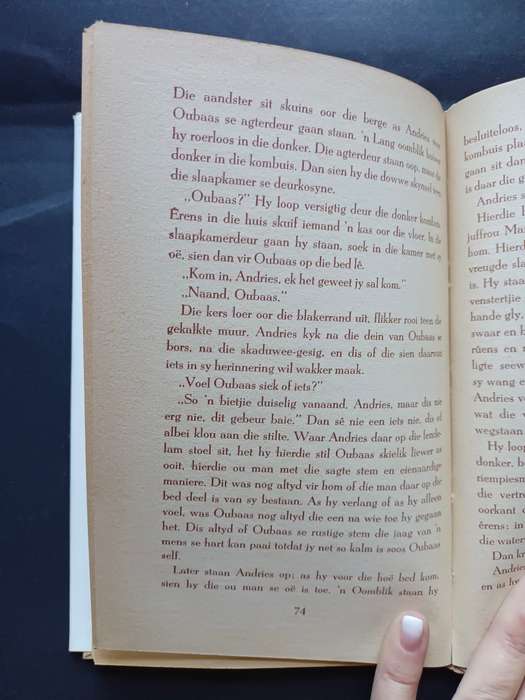 Die aandster sit skuins oor die berge as Andries voor
Oubaas se agterdeur gaan staan. 'n Lang oomblik huiwer
hy roerloos in die donker. Die agterdeur staan oop, maar dis
donker in die kombuis. Dan sien hy die dowwe skynsel teen
die slaapkamer se deurkosyne.
„Oubaas?" Hy loop versigtig deur die donker kombuis.
Êrens in die huis skuif iemand 'n kas oor die vloer. In die
slaapkamerdeur gaan hy staan, soek in die kamer met sy
oë, sien dan vir Oubaas op die bed lê.
„Kom in, Andries, ek het geweet jy sal kom."
„Naand, Oubaas."
Die kers loer oor die blakerrand uit, flikker rooi teen die
gekalkte muur. Andries kyk na die dein van Oubaas se
bors, na die skaduwee-gesig, en dis of die sien daarvan
iets in sy herinnering wil wakker maak.
„Voel Oubaas siek of iets?"
„So 'n bietjie duiselig vanaand, Andries, maar dis nie
erg nie, dit gebeur baie." Dan sê nie een iets nie, dis of
albei klou aan die stilte. Waar Andries daar op die lende-
lam stoel sit, het hy hierdie stil Oubaas skielik liewer as
ooit, hierdie ou man met die sagte stem en eienaardige
maniere. Dit was nog altyd vir hom of die man daar op die
bed deel is van sy bestaan. As hy verlang of as hy alleen
voel, was Oubaas nog altyd die een na wie toe hy gegaan
het. Dis altyd of Oubaas se rustige stem die jaag van 'n
mens se hart kan paai totdat jy net so kalm is soos Oubaas
self.
Later staan Andries op; as hy voor die hoë bed kom,
sien hy die ou man se oë is toe. 'n Oomblik staan hy
74
besluiteloos,
kombuis
gaan sit
is daar die
Andries
Hierdie
juffrou
hom. Hierd
vreugde
is. Hy staa
venstertjie
hande gly,
swaar en
rûens en
ligte
sy wang
Andries
wat die
wegstaan
Hy loop
donker,
tiempiesm
die
oorkant
êrens:
die
Dan
en as